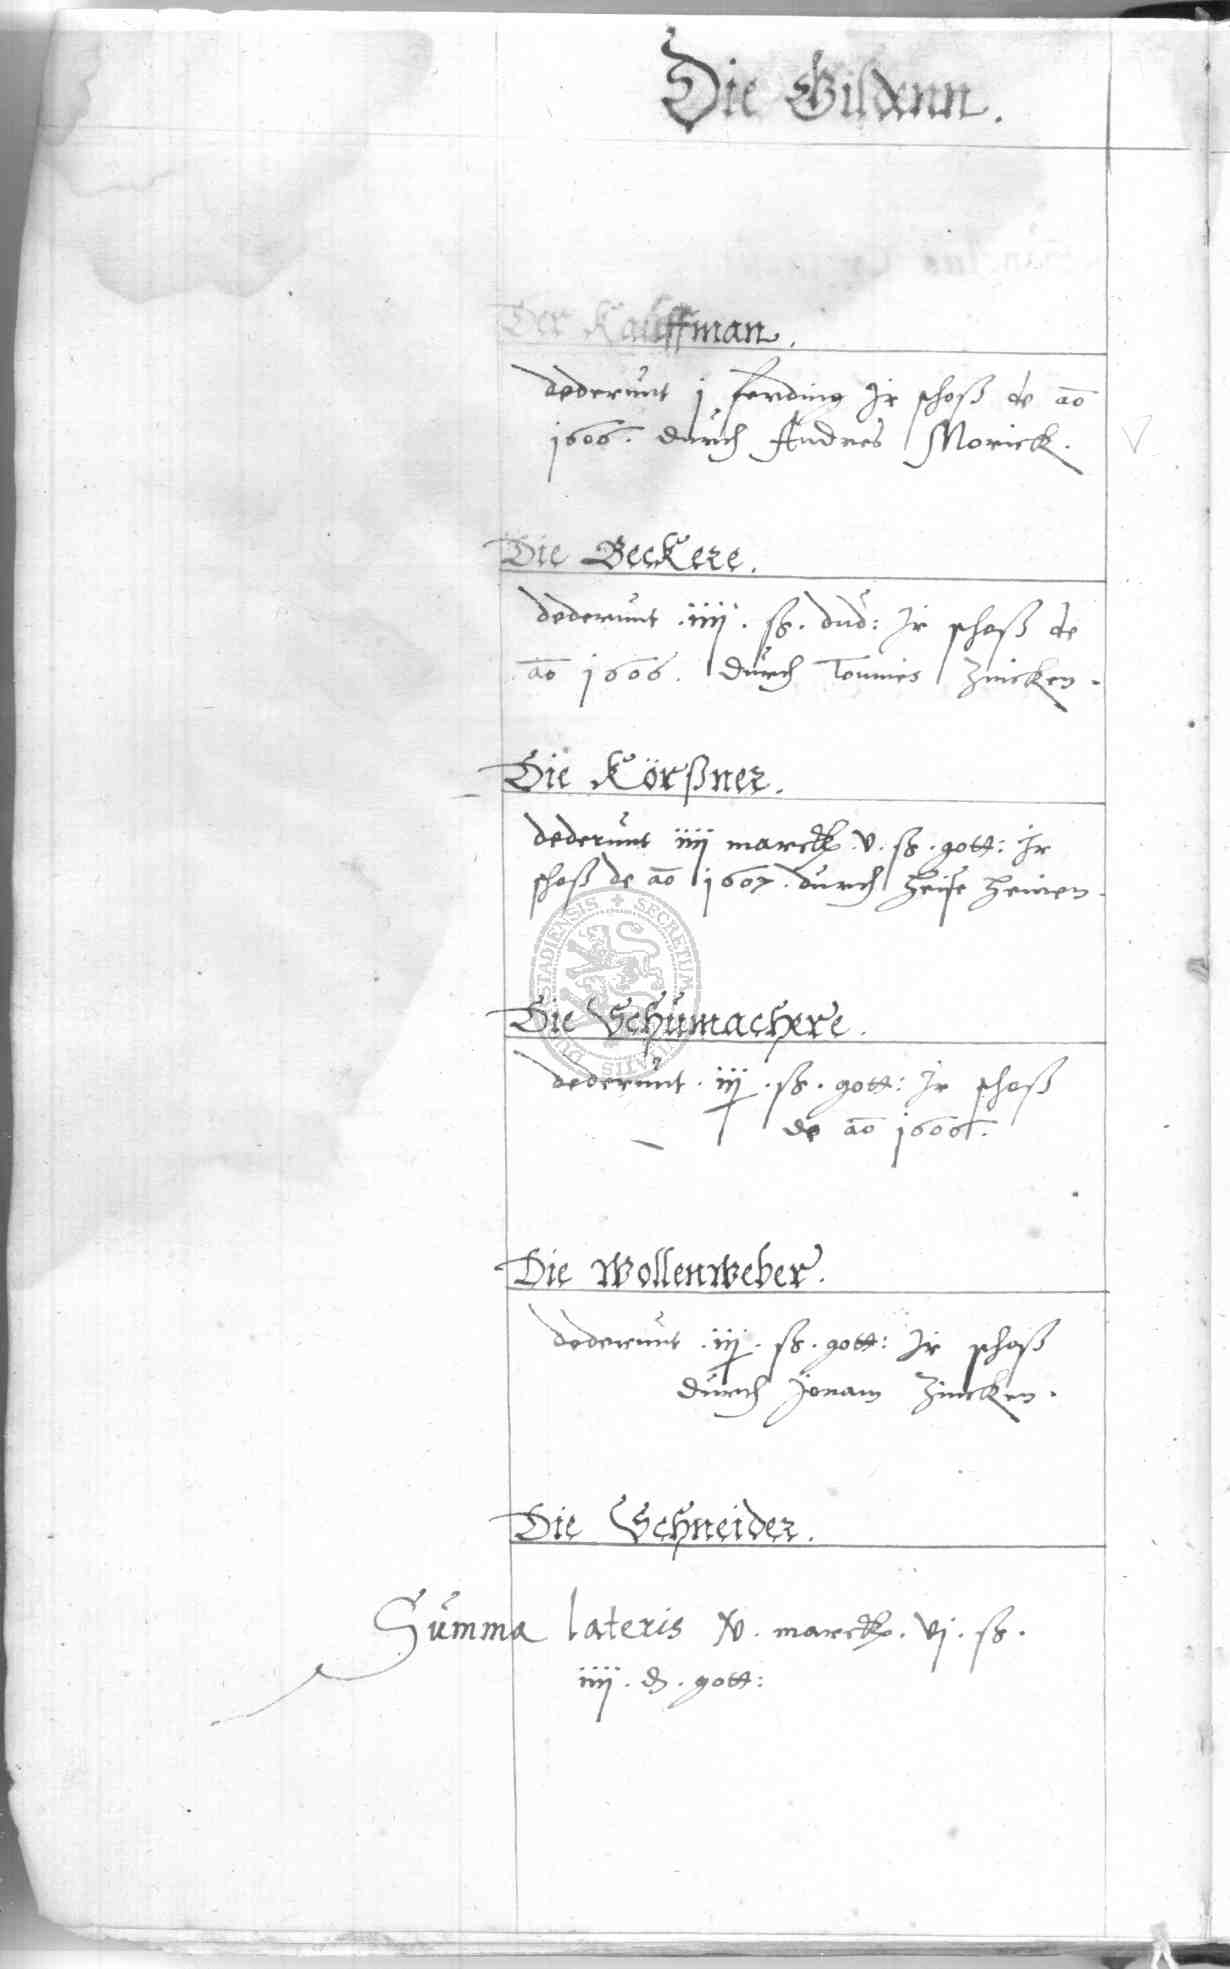 Die Gildenn.
Der Kauffman.
dederunt j ferding Ir schoß de ao
1606. durch Andres Morick.
Die Beckere.
dederunt .iiij. ß. dud: Ir schoß de
ao 1606. durch Tonnies Zincken.
Die Körßner.
dederunt iiij marck .v. ß. gott: Ir
schoß de ao 1607. durch Heise Heinen.
SECRETUM DUDERSTADIENSIS
Die Schumachere.
dederunt .iij. ß. gott: Ir schoß
de ao 1606.
Die Wollenweber.
dederunt .iij. ß. gott: Ir schoß
durch Jonam Zincken.
Die Schneider.
Summa lateris marck. vj. ß.
iiij. d. gott: